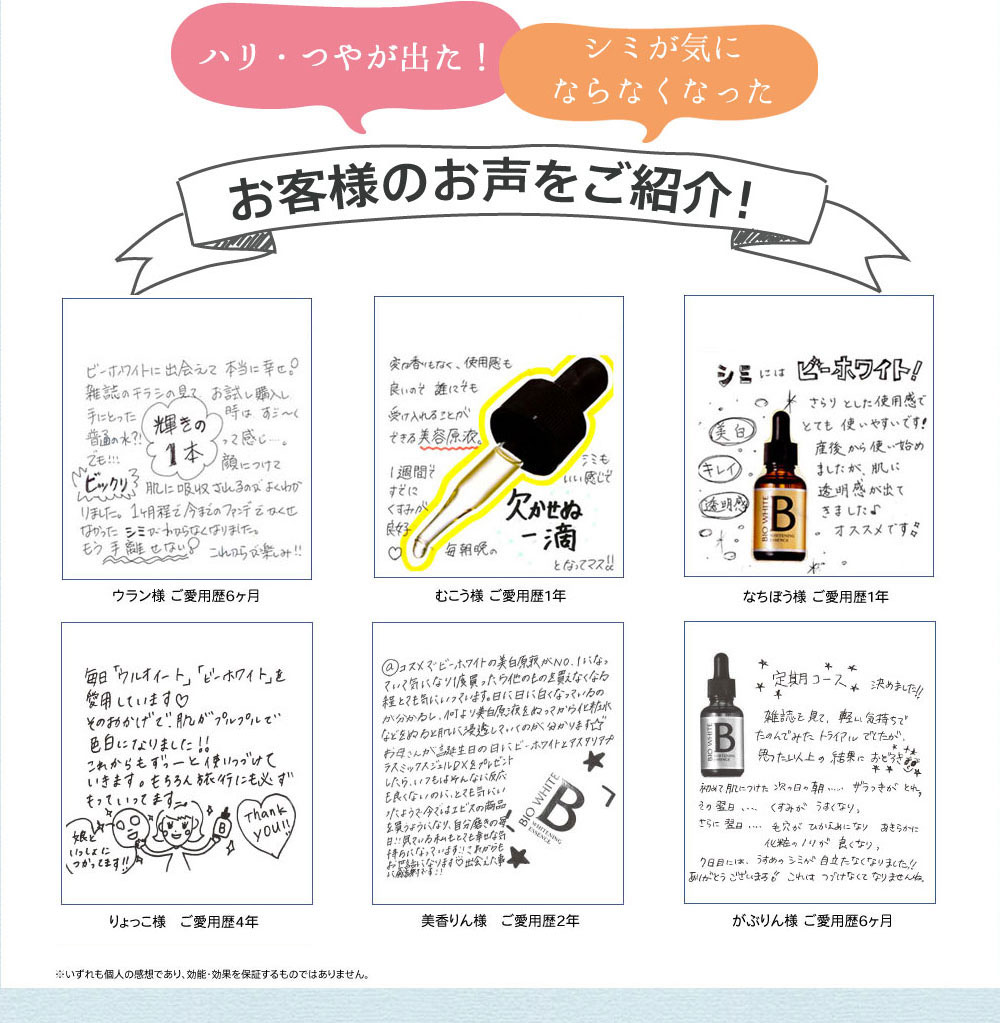 ハリ・つやが出た！
シミが気に
ならなくなった
お客様のお声をご紹介！
ビーホワイトに出会えて 本当に幸せ。
雑誌のチラシの見て お試し購入し
手にとった 時は すご〜く
普通の水?! って感じ…。
輝きの
1本
でも!!! 顔につけて
ビックリ 肌に吸収されるのがよくわか
りました。1ヶ月程で今までのファンデでなくせ
なかった シミがわからなくなりました。
もう手離せない。これからが楽しみ!!
ウラン様 ご愛用歴6ヶ月
変な香りもなく、使用感も
良いので 誰にでも
受け入れることが
できる美容原液。
1週間で
すでに
くすみが
良好♡
シミも
いい感じで
欠かせぬ
一滴
毎朝晩の
となってマス!!
むこう様 ご愛用歴1年
シミには ビーホワイト！
美白
キレイ
透明感
さらりとした使用感で
とても使いやすいです!
産後から使い始め
ましたが、肌に
透明感が出て
きました♪
オススメです
BIO WHITE
B
WHITENING
ESSENCE
なちぼう様 ご愛用歴1年
毎日「ウルオイート」「ビーホワイト」を
愛用しています♡
そのおかげで肌がプルプルで
色白になりました!!
これからもずぅーと使いつづけて
いきます。もちろん旅行にも必ず
もっていってます
娘と
いっしょに
つかってます!!
B
Thank
you!!
りょっこ様　ご愛用歴4年
@コスメでビーホワイトの美白原液がNO.1になっ
ていて気になり1度買ったら他のものを買えなくなる
程とても気にいっています。日に日に白くなっているの
が分かるし、何より美白原液をぬってから化粧水
などをぬると肌に浸透していくのが分かります☆
お母さんが誕生日の日にビーホワイトとアスタリアプ
ラスミックスジェルDXをプレゼント
したら、いつもはそんなに反応
も良くないのに、とても気にい
ったようで今ではエビスの商品
を買うようになり、自分磨きの毎
日!!見ている私もとても幸せな気
持ちになっています!!これからも
お世話になります♡出会えた事
に感謝です!!
BIO WHITE
B
WHITENING
ESSENCE
美香りん様　ご愛用歴2年
定期コース 決めました!!
雑誌を見て、軽い気持ちで
たのんでみた トライアルでしたが、
思った以上の 結果に おどろき
初めて肌につけた 次の日の朝…… ザラつきが とれ、
その翌日…. くすみが うすくなり、
さらに翌日…. 毛穴が ひかえめになり あきらかに
化粧のノリが 良くなり、
7日目には、うすめのシミが目立たなくなりました!!
ありがとうございます これは つづけなくてなりませんね。
BIO WHITE
B
WHITENING
ESSENCE
がぶりん様 ご愛用歴6ヶ月
※いずれも個人の感想であり、効能・効果を保証するものではありません。